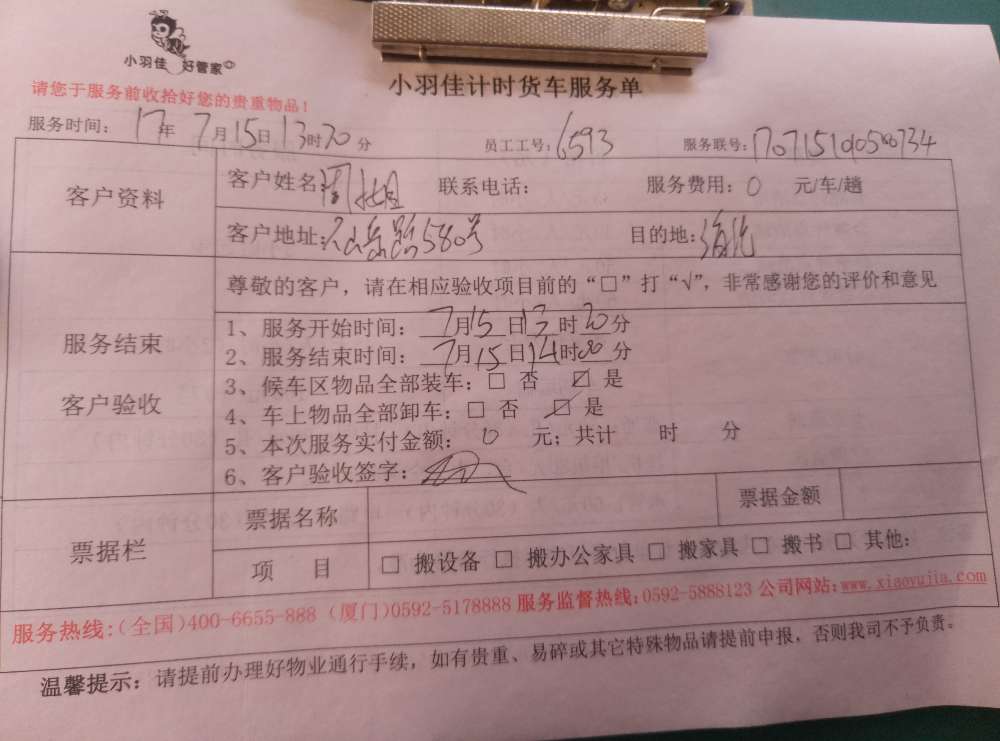 小羽佳 好管家
小羽佳计时货车服务单
请您于服务前收拾好您的贵重物品!
服务时间: 17年 7月15日13时20分 员工工号: 6593 服务联号:
客户资料
客户姓名: 周小姐 联系电话: 服务费用: 0 元/车/趟
客户地址: 580号 目的地:
服务结束
客户验收
尊敬的客户,请在相应验收项目前的“□”打“√”,非常感谢您的评价和意见
1、服务开始时间: 7月15日13时20分
2、服务结束时间: 7月15日14时00分
3、候车区物品全部装车:□ 否 ☑ 是
4、车上物品全部卸车:□ 否 ☑ 是
5、本次服务实付金额: 0 元;共计 时 分
6、客户验收签字:
票据栏
票据名称 票据金额
项 目 □ 搬设备 □ 搬办公家具 □ 搬家具 □ 搬书 □ 其他:
服务热线:(全国)400-6655-888 (厦门)0592-5178888 服务监督热线:0592-5888123 公司网站:www.xiaoyujia.com
温馨提示:请提前办理好物业通行手续,如有贵重、易碎或其它特殊物品请提前申报,否则我司不予负责。